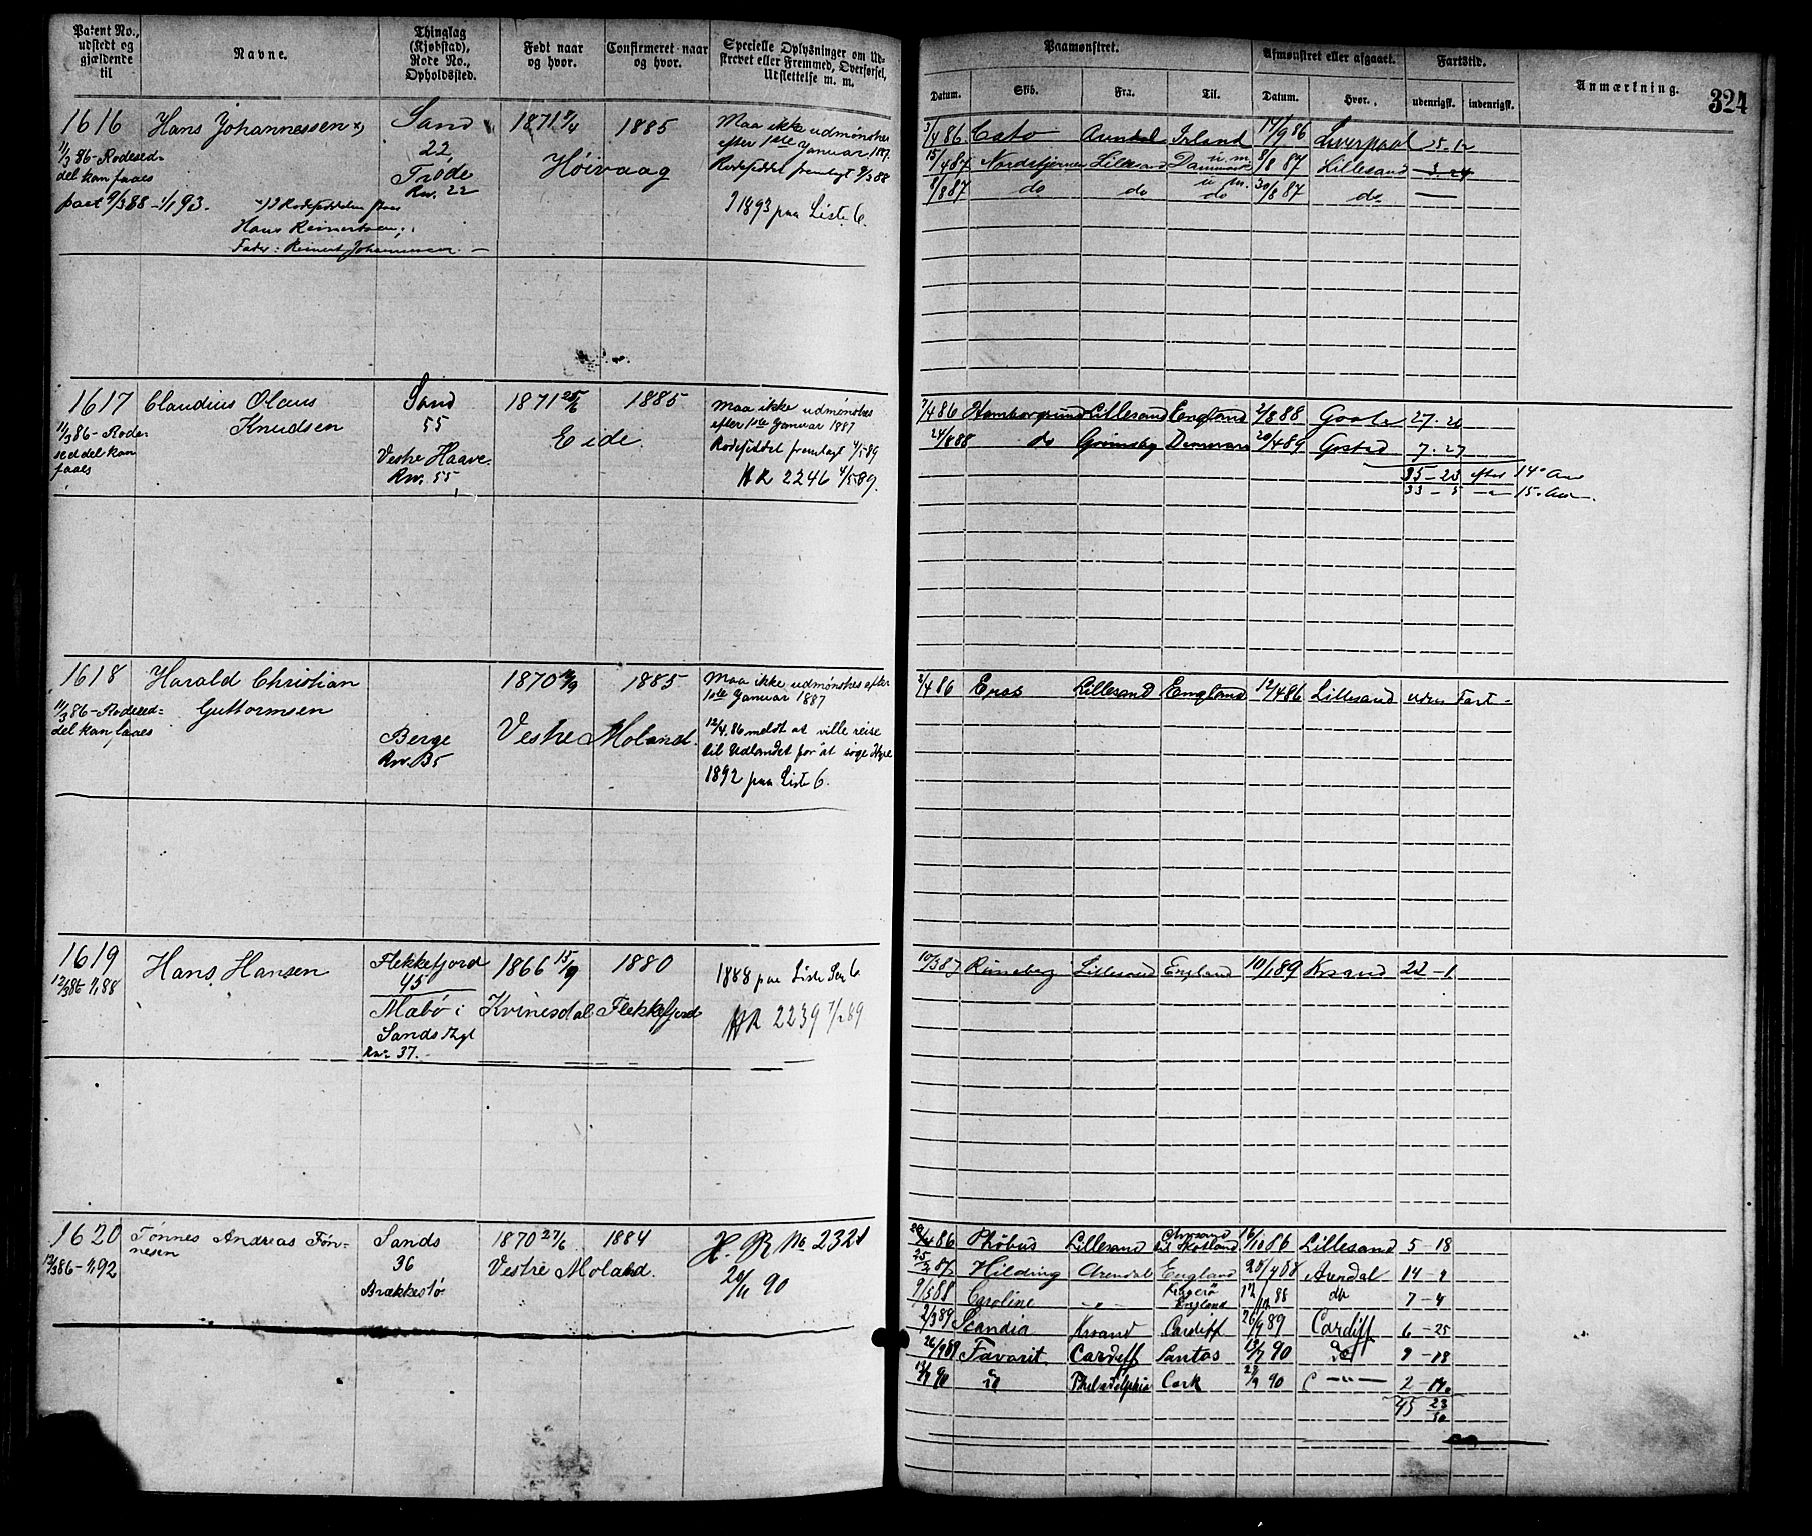 Patent No., udstedt og gjældende til
Navne.
Thinglag (Kjøbstad), Rode No., Opholdssted.
Født naar og hvor.
Confirmeret naar og hvor.
Specielle Oplysninger om Udskrevet eller Fremmed, Overførsel, Udslettelse m. m.
Paamønstret.
Afmønstret eller afgaaet.
Fartstid.
Anmærkning.
324
Datum.
Skib.
Fra.
Til.
Datum.
Hvor.
udenrigsk.
indenrigsk.
1616 Hans Johannessen x)
11/3 86 - Rodesed-
del kan faaes
paat 9/3 88 - 1/1 93.
x) I Rodeseddelen staar
Hans Reinertsen,
Fader: Reinert Johannessen. —
Sand
22
Trøde
Rn. 22
1871 9/4 1885
Høivaag
Maa ikke udmønstres
efter 1ste Januar 1887.
Rodeseddel fremlagt 9/3 88
I 1893 paa Liste 6.
3/4 86 Cato Arendal Irland 17/9 86 Liverpool 5. 12
15/4 87 Nordstjernen Lillesand Danmark u. m. 8/8 87 Lillesand 3. 24
8/8 87 do do do u. m. 30/8 87 do. —
1617 Claudius Olaus
Knudsen
11/3 86 - Rode-
seddel kan
faaes
Sand
55
Vestre Haave.
Rn. 55
1871 25/6 1885
Eide.
Maa ikke udmønstres
efter 1ste Januar 1887
Rodeseddel fremlagt 4/5 89
HR 2246 4/5 89.
7/4 86 Homborgsund Lillesand England 2/8 88 Goole 27. 26
24/8 88 do Grimsby Danmark 20/4 89 7. 27
35 - 23 efter 14° Aar
33 - 5 — " — 15. Aar.
1618 Harald Christian
Guttormsen
11/3 86 - Rodesed-
del kan faaes
Berge
Rn. 35
1870 1885
Vestre Moland.
Maa ikke udmønstres efter
1ste Januar 1887
12/4. 86 meldt at ville reise
til Udlandet for at søge Hyre
1892 paa Liste 6.
2/4 86 Eros Lillesand England 12/4 86 Lillesand uden Fart -
1619 Hans Hansen
12/3 86 1/1 88
Flekkefjord
45
Mabø i
Sands Tgl
Rn. 37.
1866 15/9 1880
Kvinesdal Flekkefjord
1888 paa Liste 6
HR 2239 7/2 89
10/3 87 Runeberg Lillesand England 10/1 89 Krsand 22 - 1
1620 Tønnes Andreas Tøn-
nesen
12/3 86 - 1/1 92
Sands
36
Brækkestø
1870 27/6 1884
Vestre Moland.
H. R No 2321
20/11 90
20/4 86 Phøbus Lillesand til Skotland 16/10 86 Lillesand 5 - 18
25/2 87 Hilding Arendal England 28/4 88 Arendal 14 - 4
9/5 88 Caroline — " — Kragerø England 12/12 88 do 7 - 4
2/3 89 Scandia Krsand Cardiff 26/9 89 Cardiff 6 - 25
26/9 89 Favorit Cardiff Santos 13/7 90 do 9 - 18
13/7 90 do Philadelphia Cork 28/9 90 — " — 2 -
45 23/30